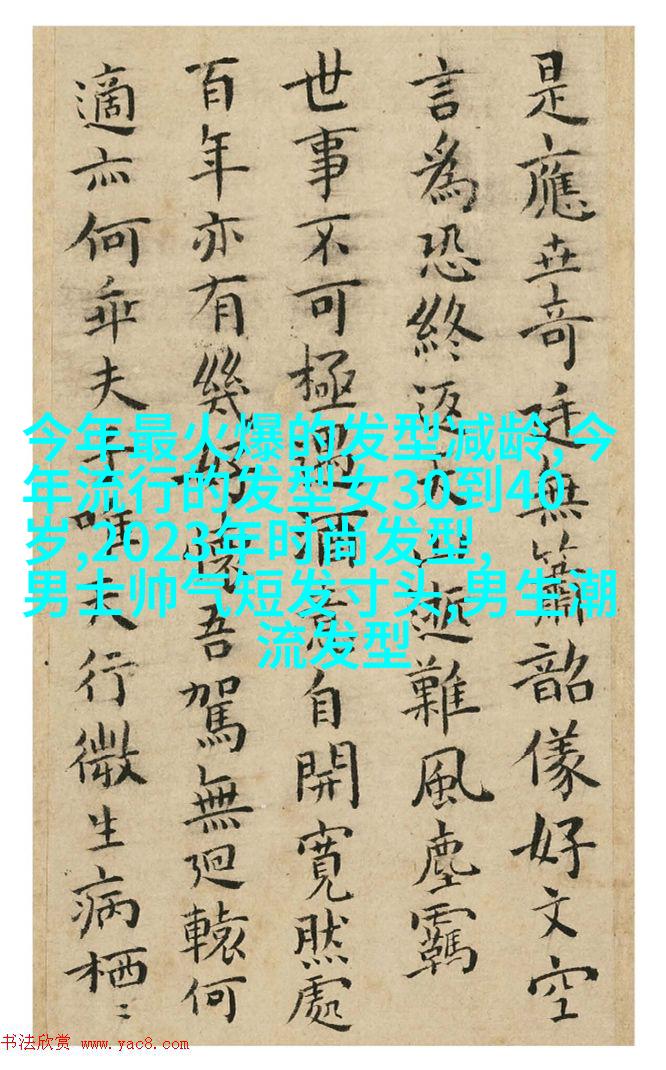 是應世奇廷無簫韶儀好文空
言為恐終返大逝難風塵羈
世事不可極酒意自開寬然處
百年亦有幾好懷吾駕無迴轅何
適亦何乖夫子唯夫行微生病栖〻
今年最火爆的发型减龄,今
年流行的发型女30到40
岁,2023年时尚发型,
男士帅气短发寸头,男生潮
流发型
书法欣赏 www.yac8.com